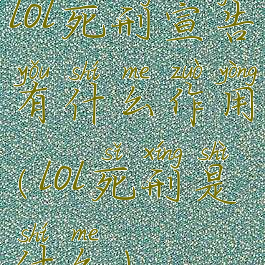 lol死刑宣告
yǒu shí me zuò yòng
有什么作用
sǐ xíng shì
(lol死刑是
shí me
什么)